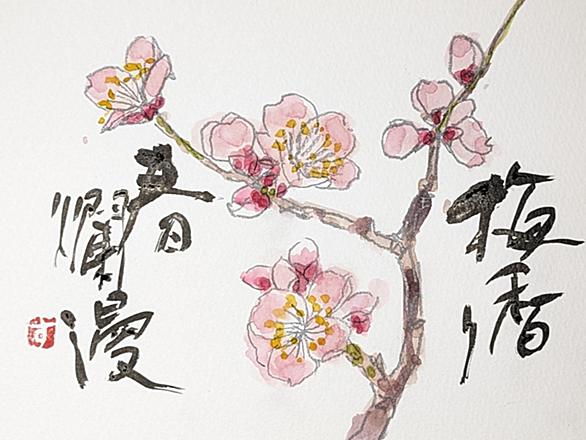 梅香り
春爛漫